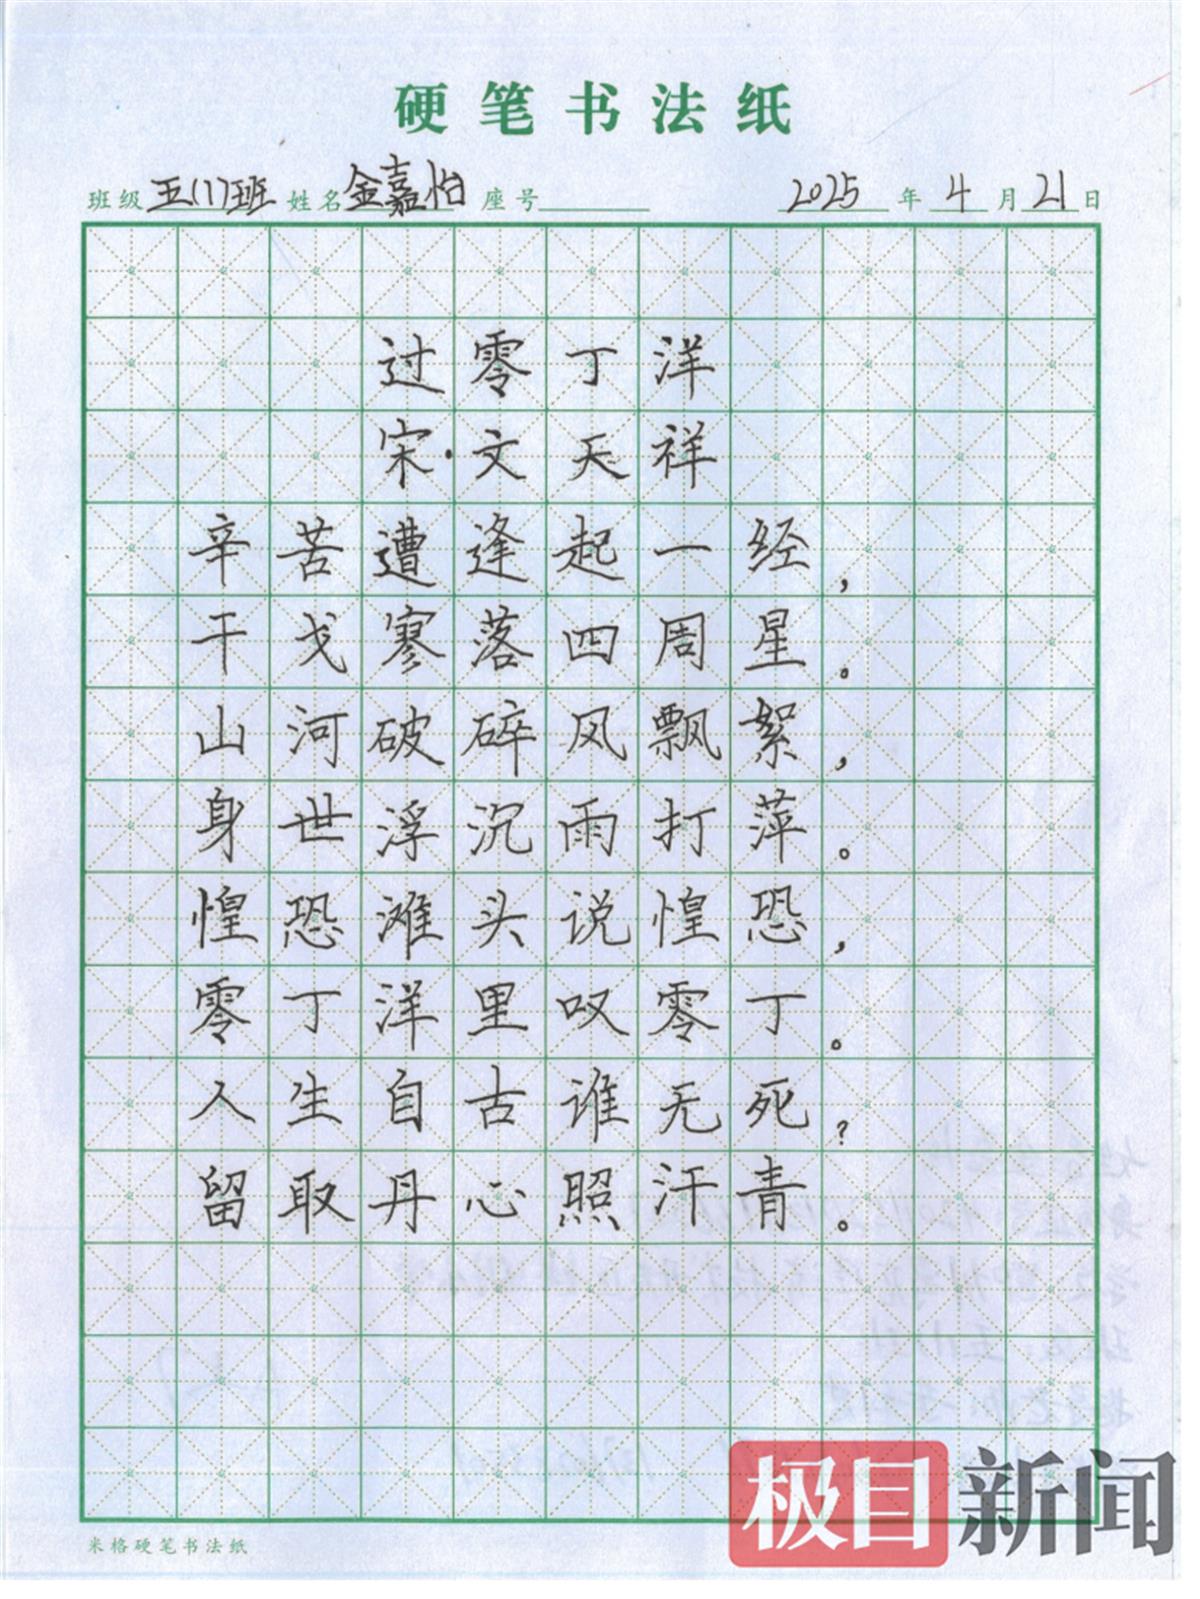 硬笔书法纸
班级 五(1)班 姓名 金嘉怡 座号 2025 年 4 月 21 日
过零丁洋
宋·文天祥
辛苦遭逢起一经，
干戈寥落四周星。
山河破碎风飘絮，
身世浮沉雨打萍。
惶恐滩头说惶恐，
零丁洋里叹零丁。
人生自古谁无死？
留取丹心照汗青。
米格硬笔书法纸
极目新闻